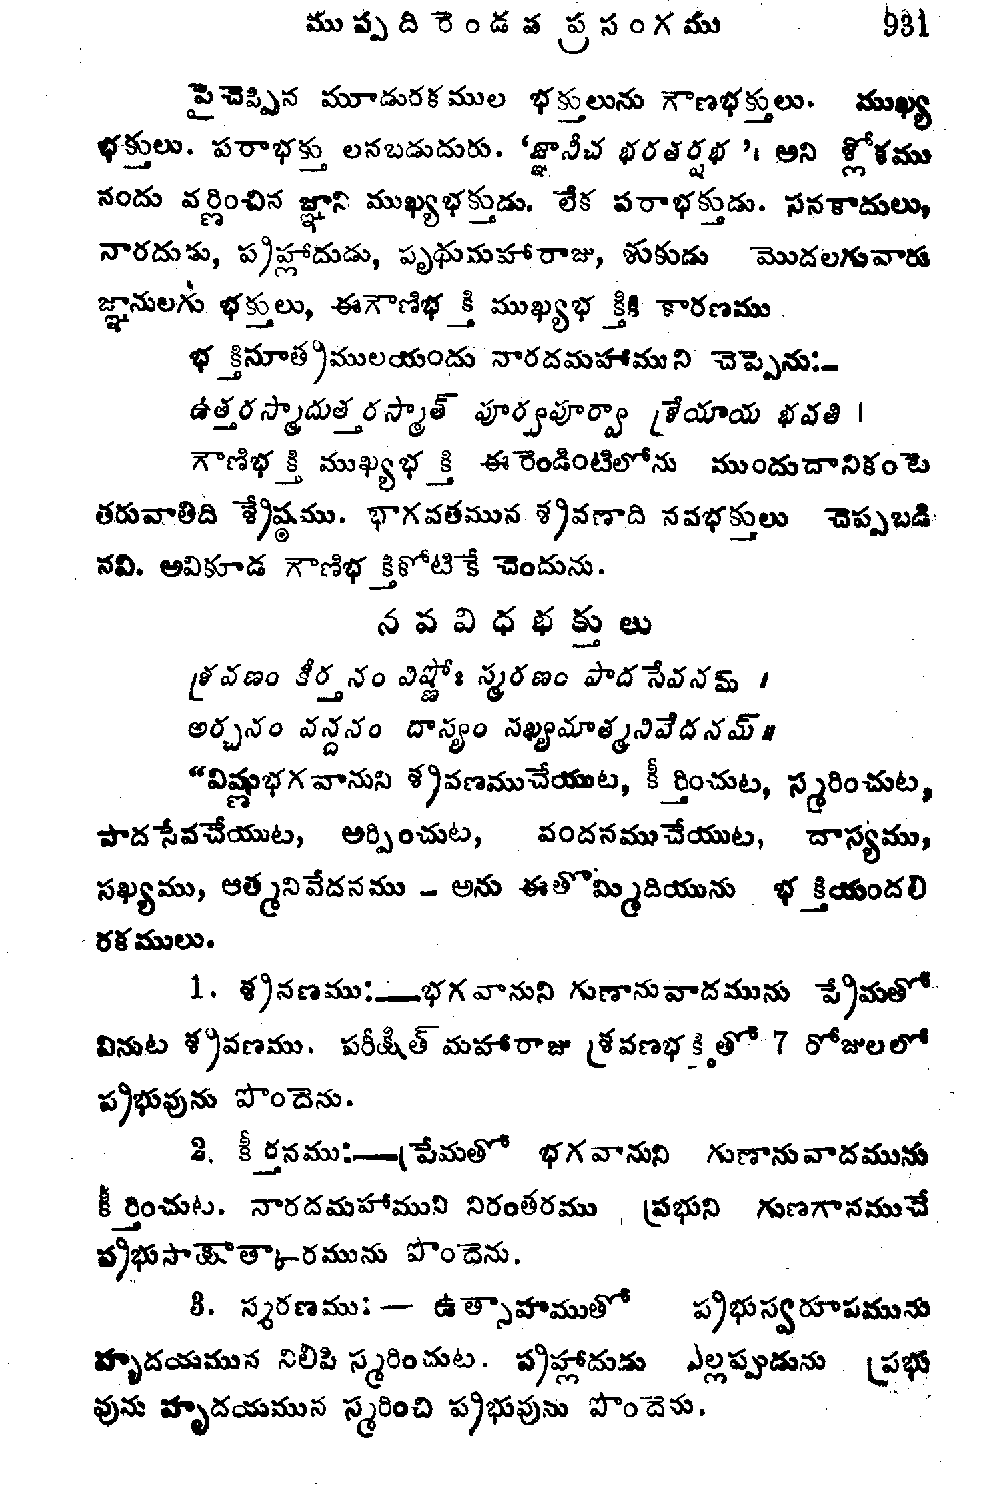 ముప్పది రెండవ ప్రసంగము 931
పైచెప్పిన మూడురకముల భక్తులును గౌణభక్తులు. ముఖ్య
భక్తులు. పరాభక్తు లనబడుదురు. ‘జ్ఞానీచ భరతర్షభ’। అని శ్లోకము
నందు వర్ణించిన జ్ఞాని ముఖ్యభక్తుడు. లేక పరాభక్తుడు. సనకాదులు,
నారదుడు, ప్రహ్లాదుడు, పృథుమహారాజు, శుకుడు మొదలగువారు
జ్ఞానులగు భక్తులు, ఈగౌణిభక్తి ముఖ్యభక్తికి కారణము.
భక్తిసూత్రములయందు నారదమహాముని చెప్పెను:–
ఉత్తరస్మాదుత్తరస్మాత్ పూర్వపూర్వా శ్రేయాయ భవతి।
గౌణిభక్తి ముఖ్యభక్తి ఈరెండింటిలోను ముందుదానికంటె
తరువాతిది శ్రేష్ఠము. భాగవతమున శ్రవణాది నవభక్తులు చెప్పబడి
నవి. అవికూడ గౌణిభక్తికోటికే చెందును.
నవవిధభక్తులు
శ్రవణం కీర్తనం విష్ణోః స్మరణం పాదసేవనమ్ ।
అర్చనం వన్దనం దాస్యం సఖ్యమాత్మనివేదనమ్॥
“విష్ణుభగవానుని శ్రవణముచేయుట, కీర్తించుట, స్మరించుట,
పాదసేవచేయుట, అర్పించుట, వందనముచేయుట, దాస్యము,
సఖ్యము, ఆత్మనివేదనము – అను ఈతొమ్మిదియును భక్తియందలి
రకములు.
1. శ్రవణము:—భగవానుని గుణానువాదమును ప్రేమతో
వినుట శ్రవణము. పరీక్షిత్ మహారాజు శ్రవణభక్తితో 7 రోజులలో
ప్రభువును పొందెను.
2. కీర్తనము:—ప్రేమతో భగవానుని గుణానువాదమును
కీర్తించుట. నారదమహాముని నిరంతరము ప్రభుని గుణగానముచే
ప్రభుసాక్షాత్కారమును పొందెను.
3. స్మరణము: — ఉత్సాహముతో ప్రభుస్వరూపమును
హృదయమున నిలిపి స్మరించుట. ప్రహ్లాదుడు ఎల్లప్పుడును ప్రభు
వును హృదయమున స్మరించి ప్రభువును పొందెను.